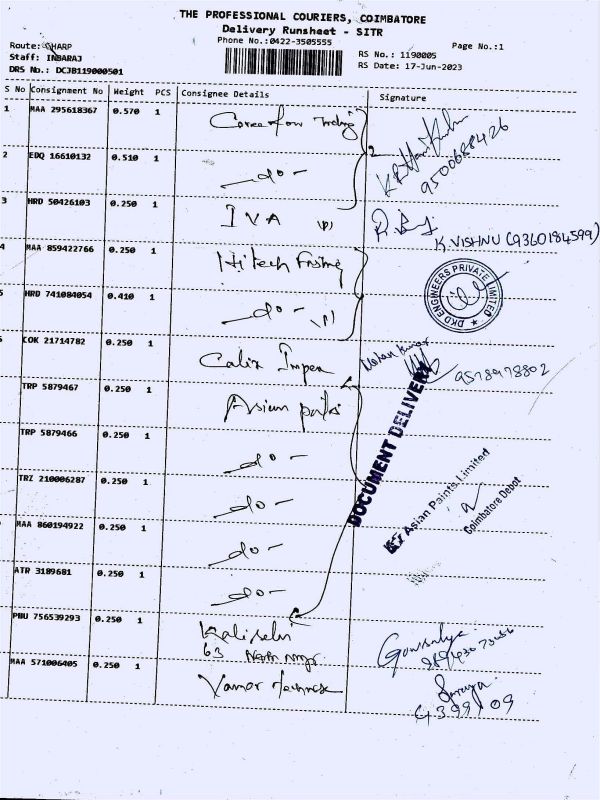 THE PROFESSIONAL COURIERS, COIMBATORE
Delivery Runsheet - SITR
Phone No.:0422-3505555
Route: SHARP
Staff: INBARAJ
DRS No.: DCJB119000501
RS No.: 1190005
RS Date: 17-Jun-2023
Page No.:1
S No Consignment No Weight PCS Consignee Details Signature
1 MAA 295618367 0.570 1
9500688426
2 EDQ 16610132 0.510 1 -do-
3 HRD 50426103 0.250 1 IVA
K.VISHNU (9360184599)
4 MAA 859422766 0.250 1 Hitech
DKD ENGINEERS PRIVATE LIMITED
5 HRD 741084054 0.410 1 -do-
COK 21714782 0.250 1 Calix Impex
9578978802
TRP 5879467 0.250 1 Asian paints
DOCUMENT DELIVERY
TRP 5879466 0.250 1 -do-
Asian Paints Limited
Coimbatore Depot
TRZ 210006287 0.250 1 -do-
MAA 860194922 0.250 1 -do-
ATR 3189681 0.250 1 -do-
PNU 756539293 0.250 1 Kaliselvi
63
Gowsalya
MAA 571006405 0.250 1